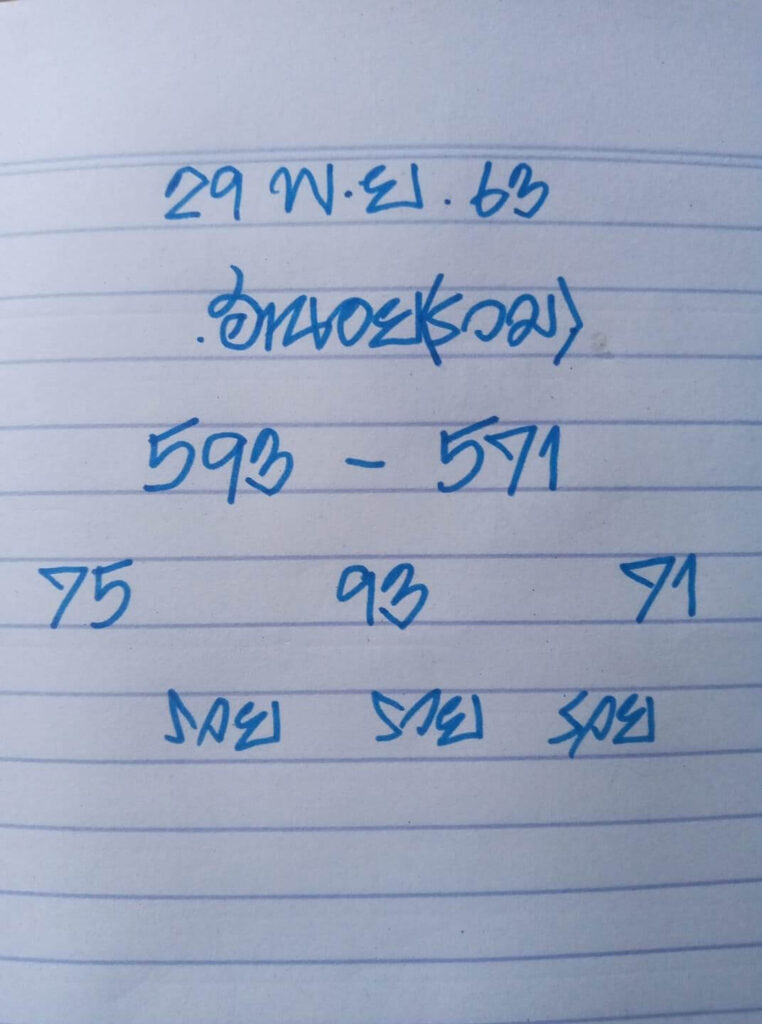 29 พ.ย. 63
ฮานอย(รวม)
593 - 571
75 93 71
รวย รวย รวย